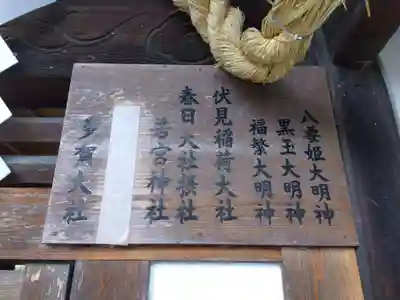 八巻姫大明神
黒玉大明神
福繁大明神
伏見稲荷大社
春日大社摂社
若宮神社
多賀大社